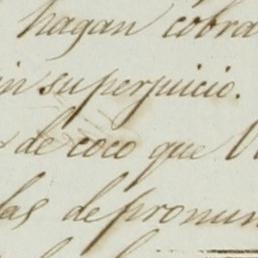 hagan cobra
in superjuicio.
de coco que V
las depronun